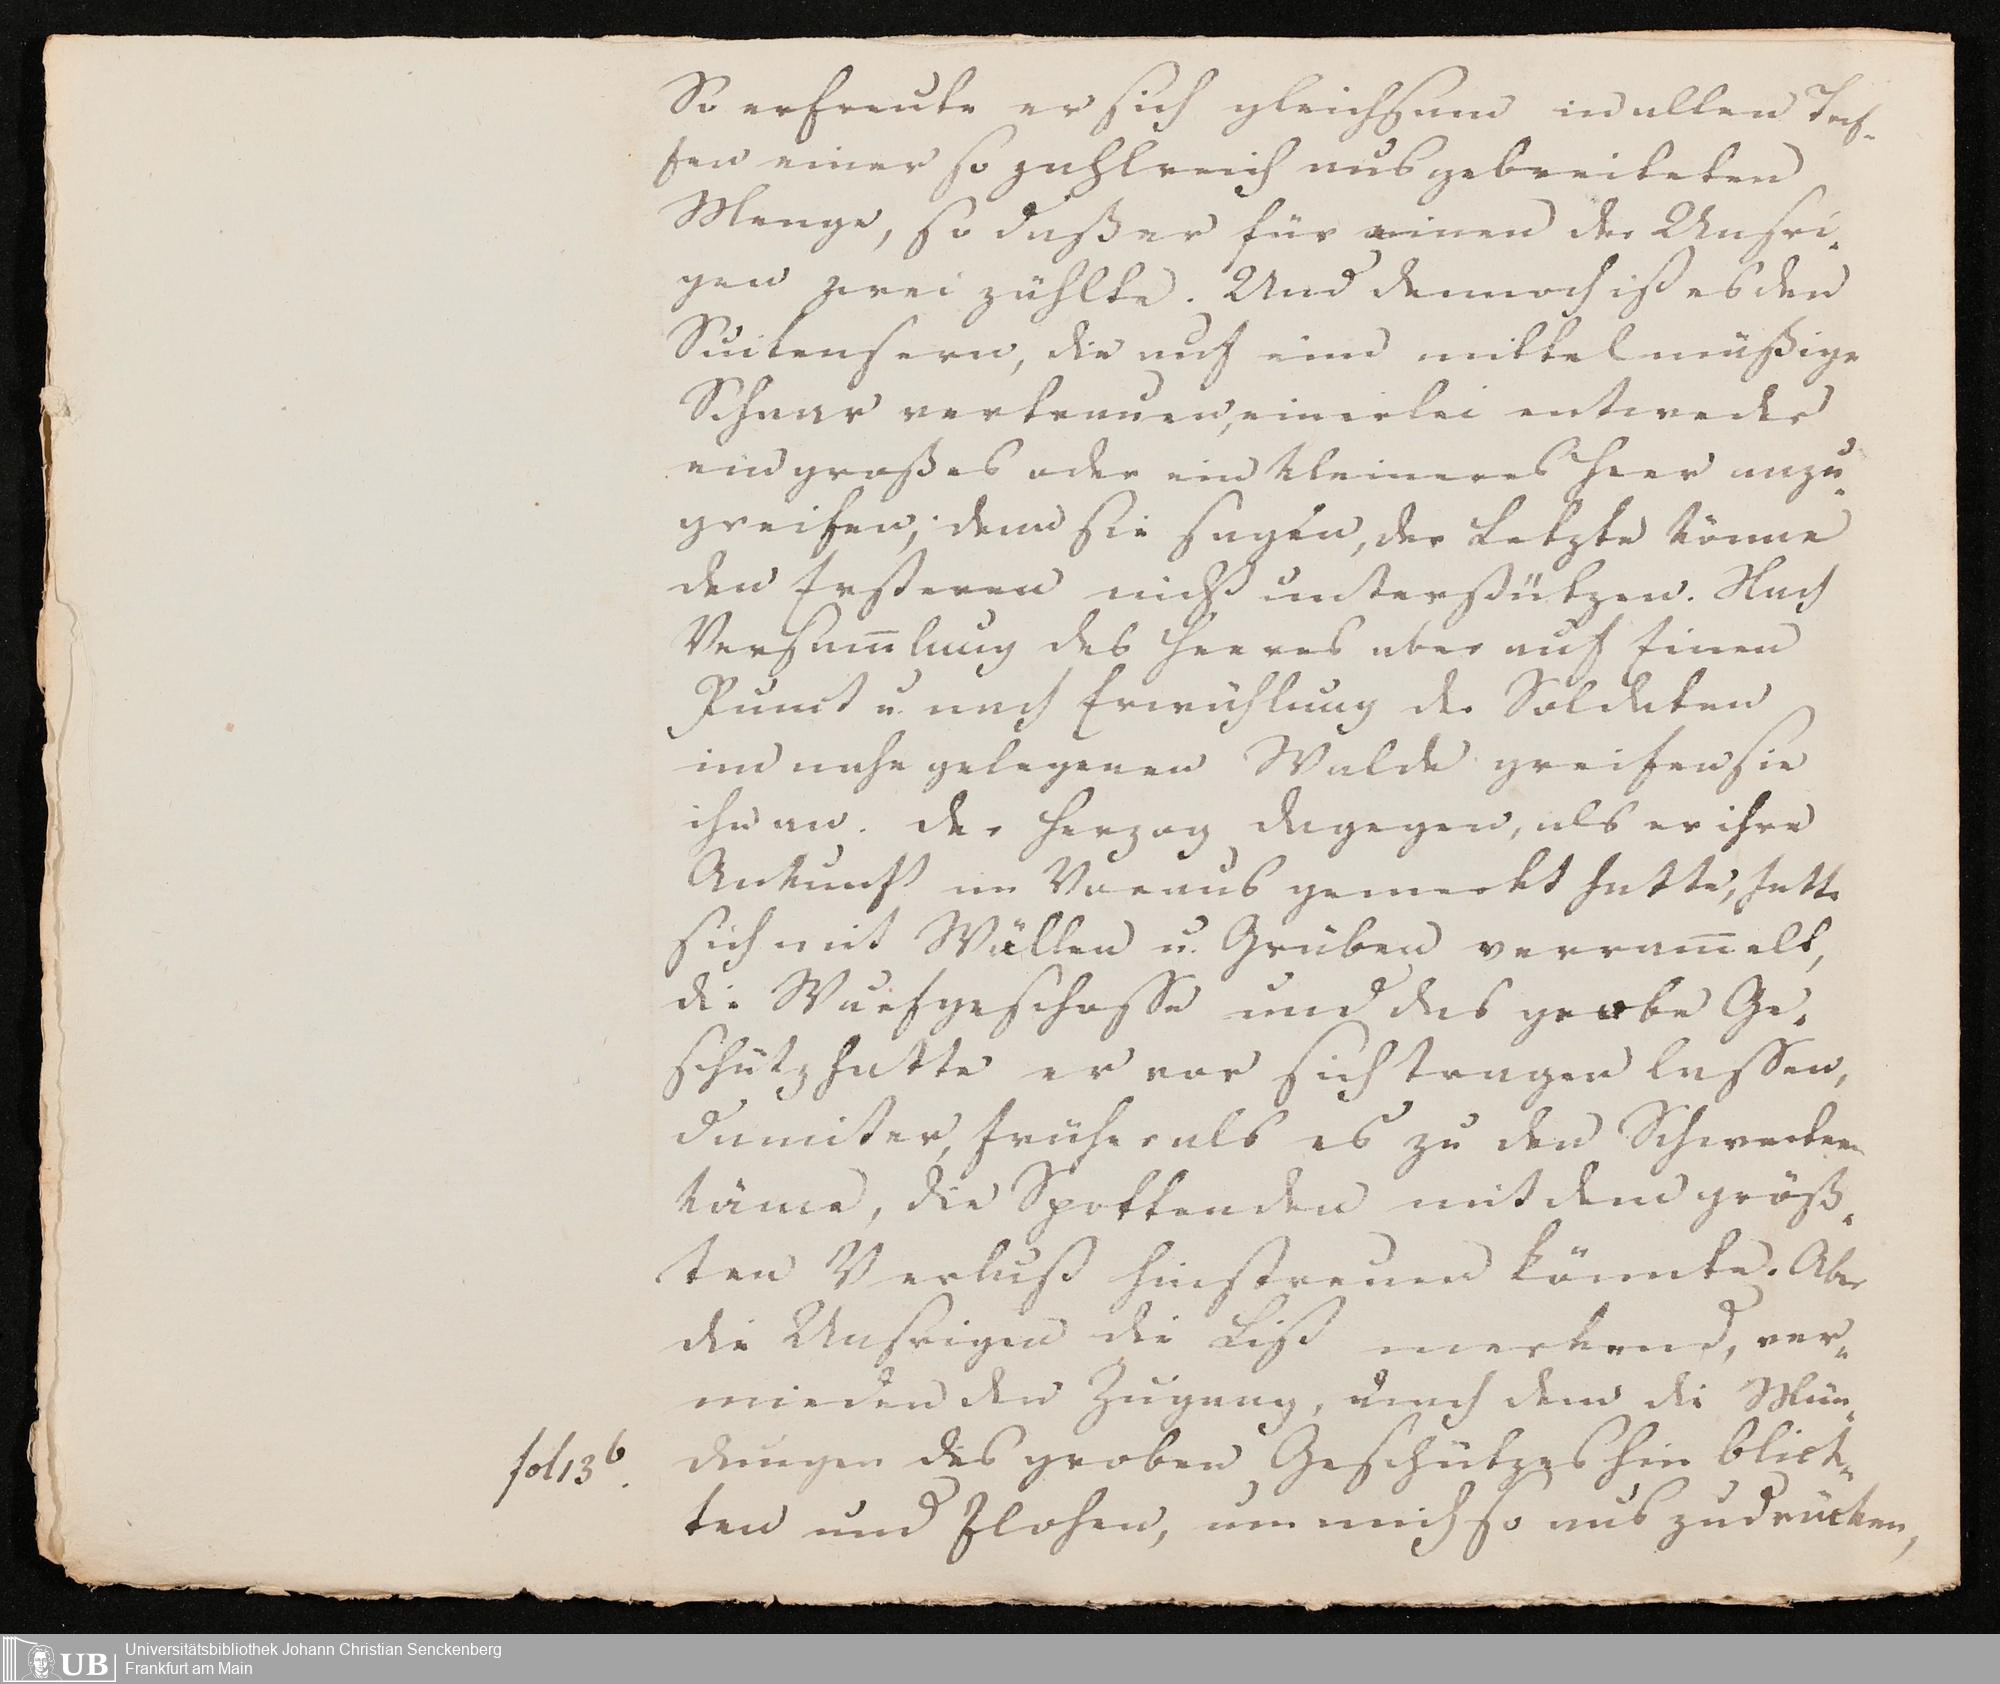 So erfreute er sich gleichsam in allen Tref-
fen einer so zahlreich ausgebreiteten
Menge, so daß er für einen der Unsri-
gen zwei zählte. Und dennoch ist es den
Suitensern, die auf eine mittelmäßige
Schaar vertrauen, einerlei entweder
ein großes oder ein kleineres Heer anzu-
greifen; denn sie sagen, der Letzte könne
den Ersteren nicht unterstützen. Nach
Versam̄lung des Heeres aber auf Einen
Punct u. nach Erwählung der Soldaten
im nahe gelegenen Walde greifen sie
ihn an. der Herzog dagegen, als er ihre
Ankunft im Voraus gemerkt hatte, hatte
sich mit Wällen u. Gräben verram̄elt,
die Wurfgeschosse und das grobe Ge-
schütz hatte er vor sich tragen lassen,
damit er, früher als es zu den Schwertern
käme, die Spottenden mit dem größ-
ten Verlust hinstreuen könnte. Aber
die Unsrigen die List merkend, ver-
mieden den Zugang, nach dem die Mün-
fol 13 b.
dungen des groben Geschützes hin blick-
ten und flohen, um mich so auszudrücken,
Universitätsbibliothek Johann Christian Senckenberg
Frankfurt am Main
UB